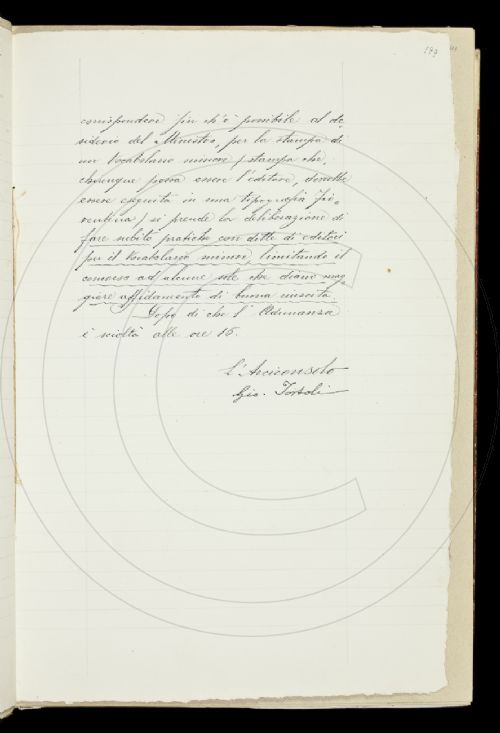 193
corrispondere più ch'è possibile al de-
siderio del Ministro, per la stampa di
un Vocabolario minore (stampa che,
chiunque possa essere l'editore, dovrebbe
essere eseguita in una tipografia fio-
rentina) si prende la deliberazione di
fare subito pratiche con ditte di editori
per il Vocabolario minore limitando il
concorso ad alcune sole che diano mag-
giore affidamento di buona riuscita.
Dopo di che l'Adunanza
è sciolta alle ore 16.
L'Arciconsolo
Gio. Tortoli